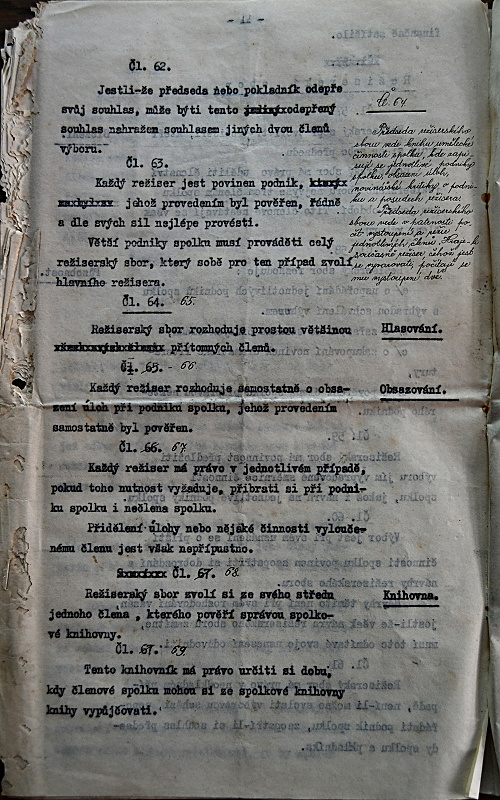 - 11 -
Čl. 62.
Jestli-že předseda nebo pokladník odepře
svůj souhlas, může býti tento odepřený
souhlas nahražen souhlasem jiných dvou členů
výboru.
Čl. 63.
Každý režiser jest povinen podnik,
jehož provedením byl pověřen, řádně
a dle svých sil nejlépe provésti.
Větší podniky spolku musí prováděti celý
režiserský sbor, který sobě pro ten případ zvolí
hlavního režisera.
Čl. 64. 65.
Režiserský sbor rozhoduje prostou většinou
přítomných členů.
Hlasování.
Čl. 65. - 66
Každý režiser rozhoduje samostatně o obsa-
zení úloh při podniku spolku, jehož provedením
samostatně byl pověřen.
Obsazování.
Čl. 66. 67
Každý režiser má právo v jednotlivém případě,
pokud toho nutnost vyžaduje, přibrati si při podni-
ku spolku i nečlena spolku.
Přidělení úlohy nebo nějaké činnosti vylouče-
nému členu jest však nepřípustno.
Čl. 67. 68.
Režiserský sbor zvolí si ze svého středu
jednoho člena , kterého pověří správou spolko-
vé knihovny.
Knihovna.
Čl. 67. 69.
Tento knihovník má právo určiti si dobu,
kdy členové spolku mohou si ze spolkové knihovny
knihy vypůjčovati.
Čl. 64
Předseda režiserského
sboru vede knihu umělecké
činnosti spolku, kde zapi-
sují se jednotlivé podniky
spolku, obsazení úloh,
novinářské kritiky o podni-
ku a posudek režisera.
Předseda režiserského
sboru vede v
jednotlivých členů